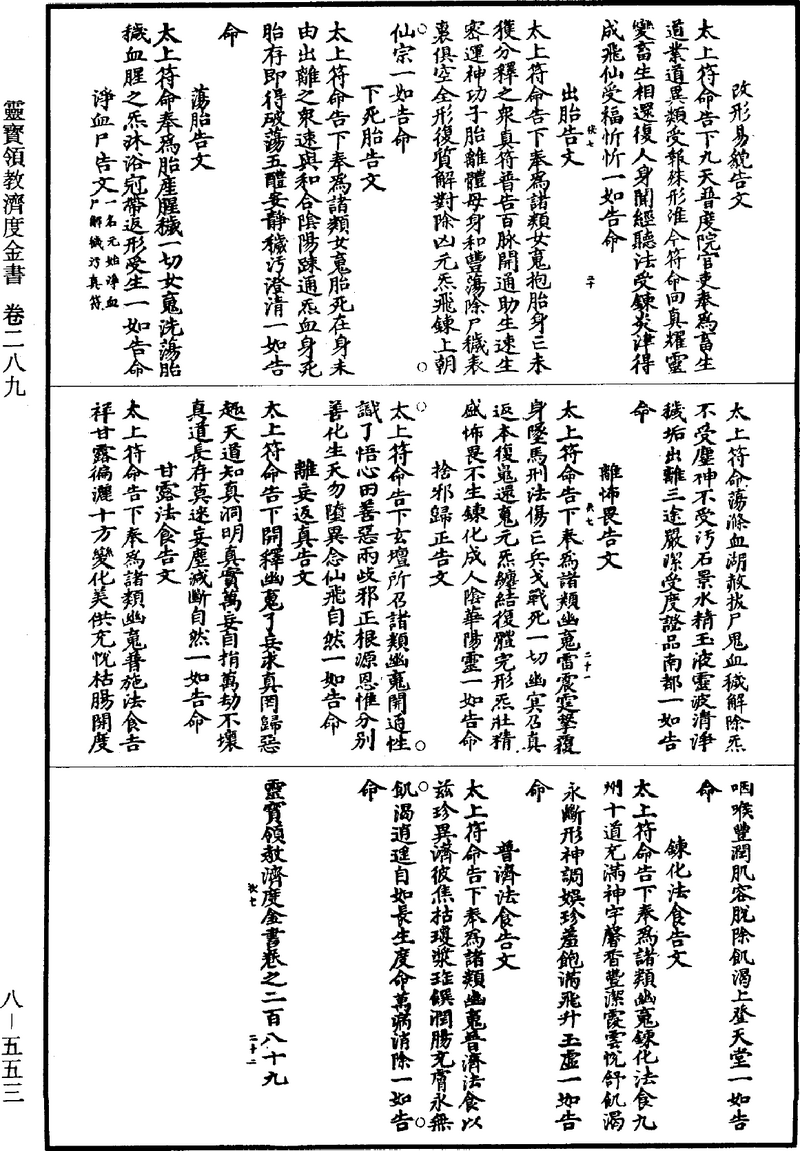 改形易貌告文
太上符命告下九天普度院官吏奉為畜生
道業道異類受報殊形准今符命回真耀靈
變畜生相還復人身開經聽法受鍊炎津得
成飛仙受福忻忻一如告命
出胎告文
太上符命告下奉為諸類女䰟抱胎身亡未
獲分釋之衆真符普告百脉開通助生速生
密運神功子胎離體母身和豐蕩除尸穢表
裏俱空全形復質解對除凶元炁飛鍊上朝
仙宗一如告命
下死胎告文
太上符命告下奉為諸類女䰟胎死在身未
由出離之衆速與和合陰陽踈通炁血身死
胎存即得破蕩五體安静穢污澄清一如告
命
蕩胎告文
太上符命奉為胎産腥穢一切女䰟洗蕩胎
穢血腥之炁沐浴冠帶返形受生一如告命
淨血尸告文一名元始淨血尸解穢污真符
太上符命蕩滌血湖赦拔尸鬼血穢解除炁
不受塵神不受污石景水精玉液靈波清淨
穢垢出離三途嚴潔受度證品南都一如告
命
離怖畏告文
太上符命告下奉為諸類幽䰟雷震霆擊覆
身墜馬刑法傷亡兵戈戰死一切幽冥召真
返本復䰟還䰟元炁纏結復體完形炁壯精
盛怖畏不生鍊化成人陰華陽靈一如告命
捨邪歸正告文
太上符命告下玄壇所召諸類幽䰟開通性
識了悟心田善惡兩歧邪正根源思惟分別
善化生天勿墮異念仙飛自然一如告命
離妄返真告文
太上符命告下開釋幽䰟了妄求真罔歸惡
趣天道知真洞明真實萬妄自捐萬劫不壞
真道長存莫迷妄塵滅斷自然一如告命
甘露法食告文
太上符命告下奉為諸類幽䰟普施法食吉
祥甘露徧灑十方變化美供充悅枯腸開度
咽喉豐潤肌容脫除飢渴上登天堂一如告
命
鍊化法食告文
太上符命告下奉為諸類幽䰟鍊化法食九
州十道充滿神宇馨香豐潔靉雲悅舒飢渴
永斷形神調娛珍羞飽滿飛升玉虛一如告
命
普濟法食告文
太上符命告下奉為諸類幽䰟普濟法食以
兹珍異濟彼焦枯瓊漿珍饌潤腸充膚永無
飢渴逍遥自如長生度命萬病消除一如告
命
靈寳領教濟度金書卷之二百八十九
靈寶領教濟度金書　卷二八九
八－五五三